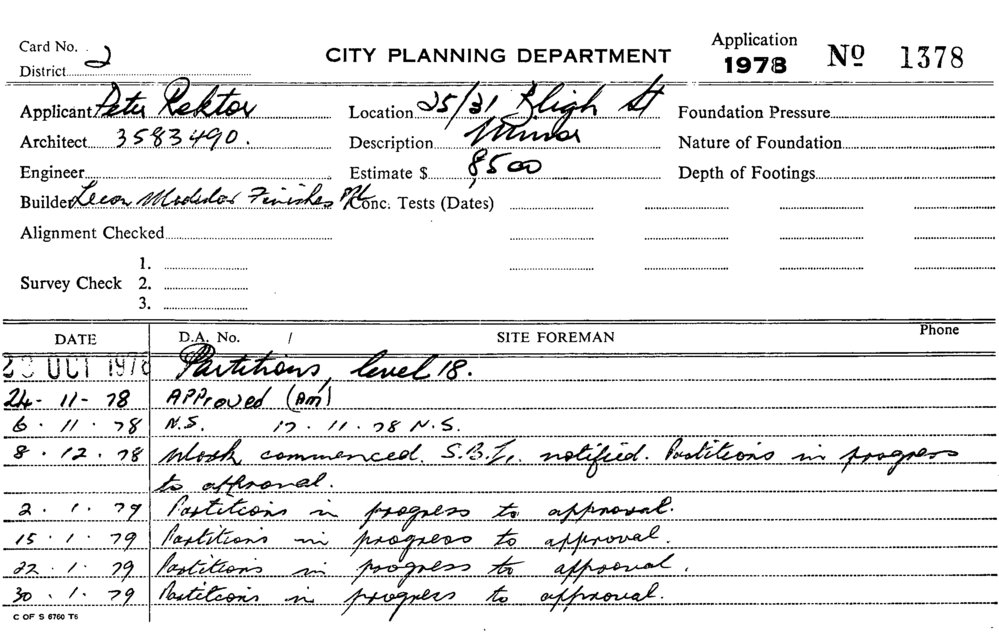 Card No. 2
CITY PLANNING DEPARTMENT
Application
1978
Nº 1378
District
Applicant Peter Rektor
Location 25/31 Bligh St
Foundation Pressure
Architect 3583490.
Description Minor
Nature of Foundation
Engineer
Estimate $ 8,500
Depth of Footings
Builder Lecon Modular Finishes P/L
Conc. Tests (Dates)
Alignment Checked
1.
Survey Check 2.
3.
DATE D.A. No. / SITE FOREMAN Phone
OCT 1978 Partitions, level 18.
24-11-78 APProved (Am)
6.11.78 N.S. 17.11.78 N.S.
8.12.78 Work commenced. S.B.I. notified. Partitions in progress
to approval.
2.1.79 Partitions in progress to approval.
15.1.79 Partitions in progress to approval.
22.1.79 Partitions in progress to approval.
30.1.79 Partitions in progress to approval.
C OF S 6760 T6